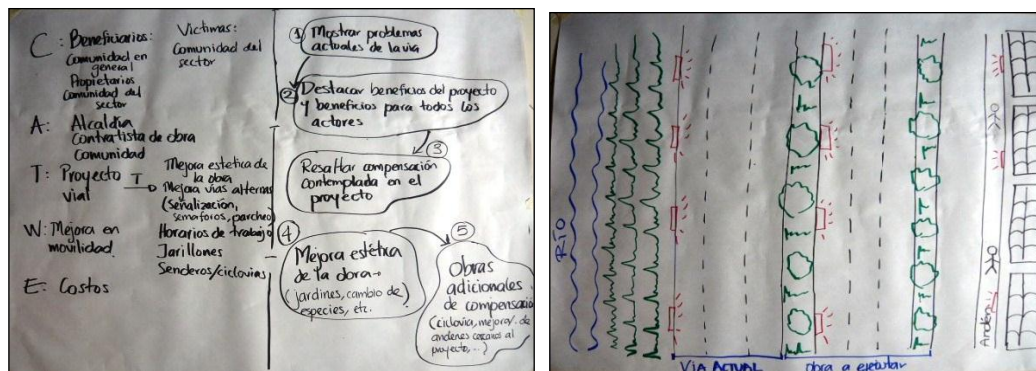 C: Beneficiarios:
Comunidad en
general
Propietarios
Comunidad del
sector
Victimas:
Comunidad del
sector
A: Alcaldía
Contratista de obra
Comunidad
T: Proyecto
vial
T
Mejora estética de
la obra
Mejora vías alternas
(señalización,
semáforos, parcheo)
Horarios de trabajo
Jarillones
Senderos/ciclovías
W: Mejora en
movilidad.
E: Costos
① Mostrar problemas
actuales de la vía
② Destacar beneficios del proyecto
y beneficios para todos los
actores
③
Resaltar compensación
contemplada en el
proyecto
④
Mejora estética
de la obra
(jardines, cambio de
especies, etc.
⑤
Obras
adicionales
de compensación
(ciclovía, mejora/. de
andenes cercanos al
proyecto,...)
RÍO
VÍA ACTUAL
obra a ejecutar
Andén